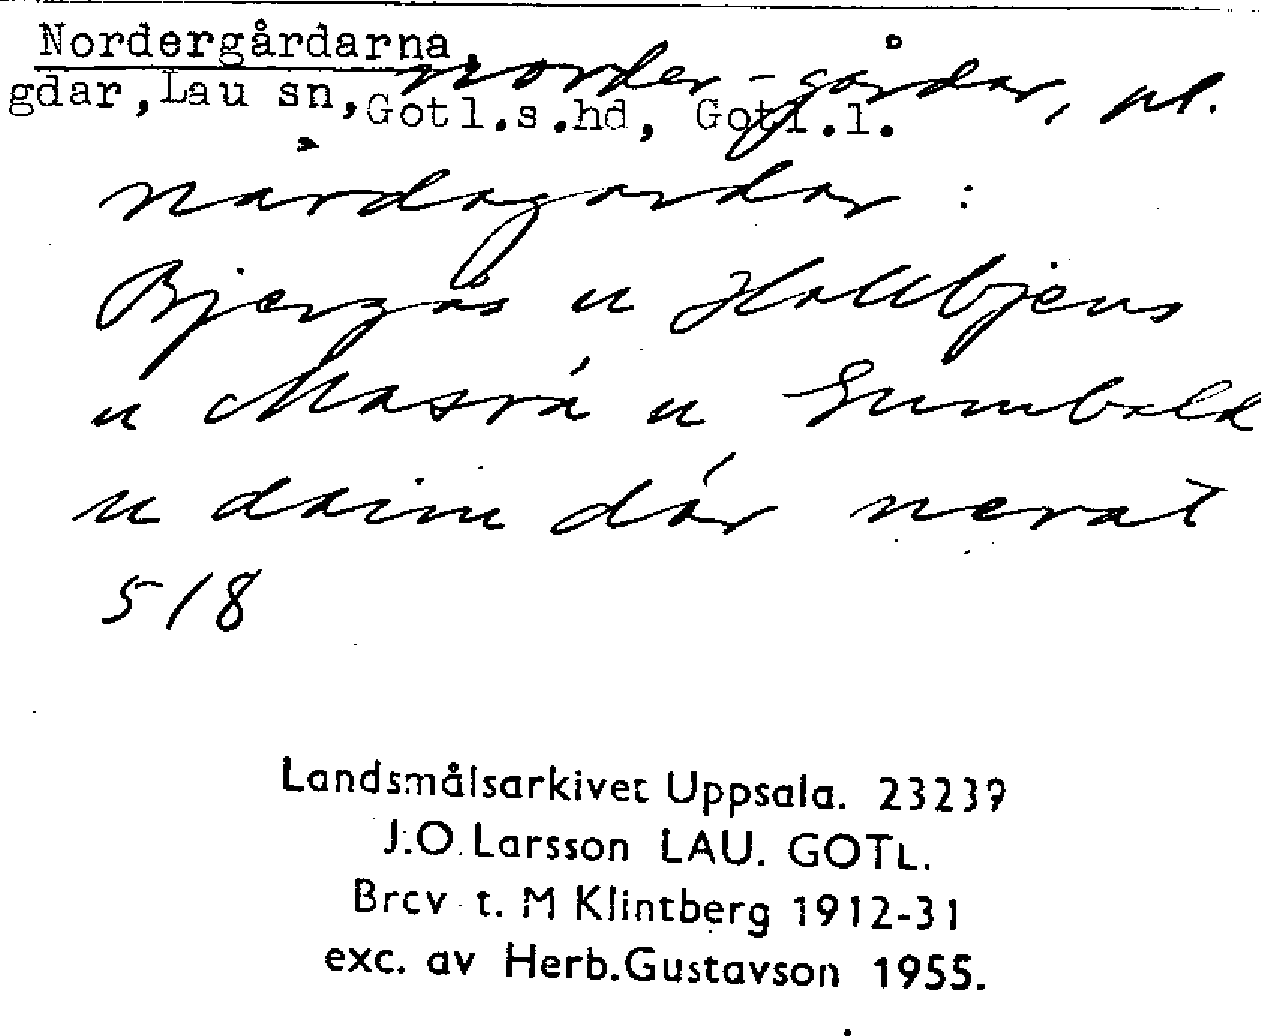 Nordergårdarna,
norder-gårdar, pl.
gdar, Lau sn, Gotl.s.hd, Gotl.l.
nårdagardar :
Bjergås u Hallbjens
u Masrå u Gumbald
u daim där nerat
5/8
Landsmålsarkivet Uppsala. 23239
J.O. Larsson LAU. GOTL.
Brev t. M Klintberg 1912-31
exc. av Herb.Gustavson 1955.